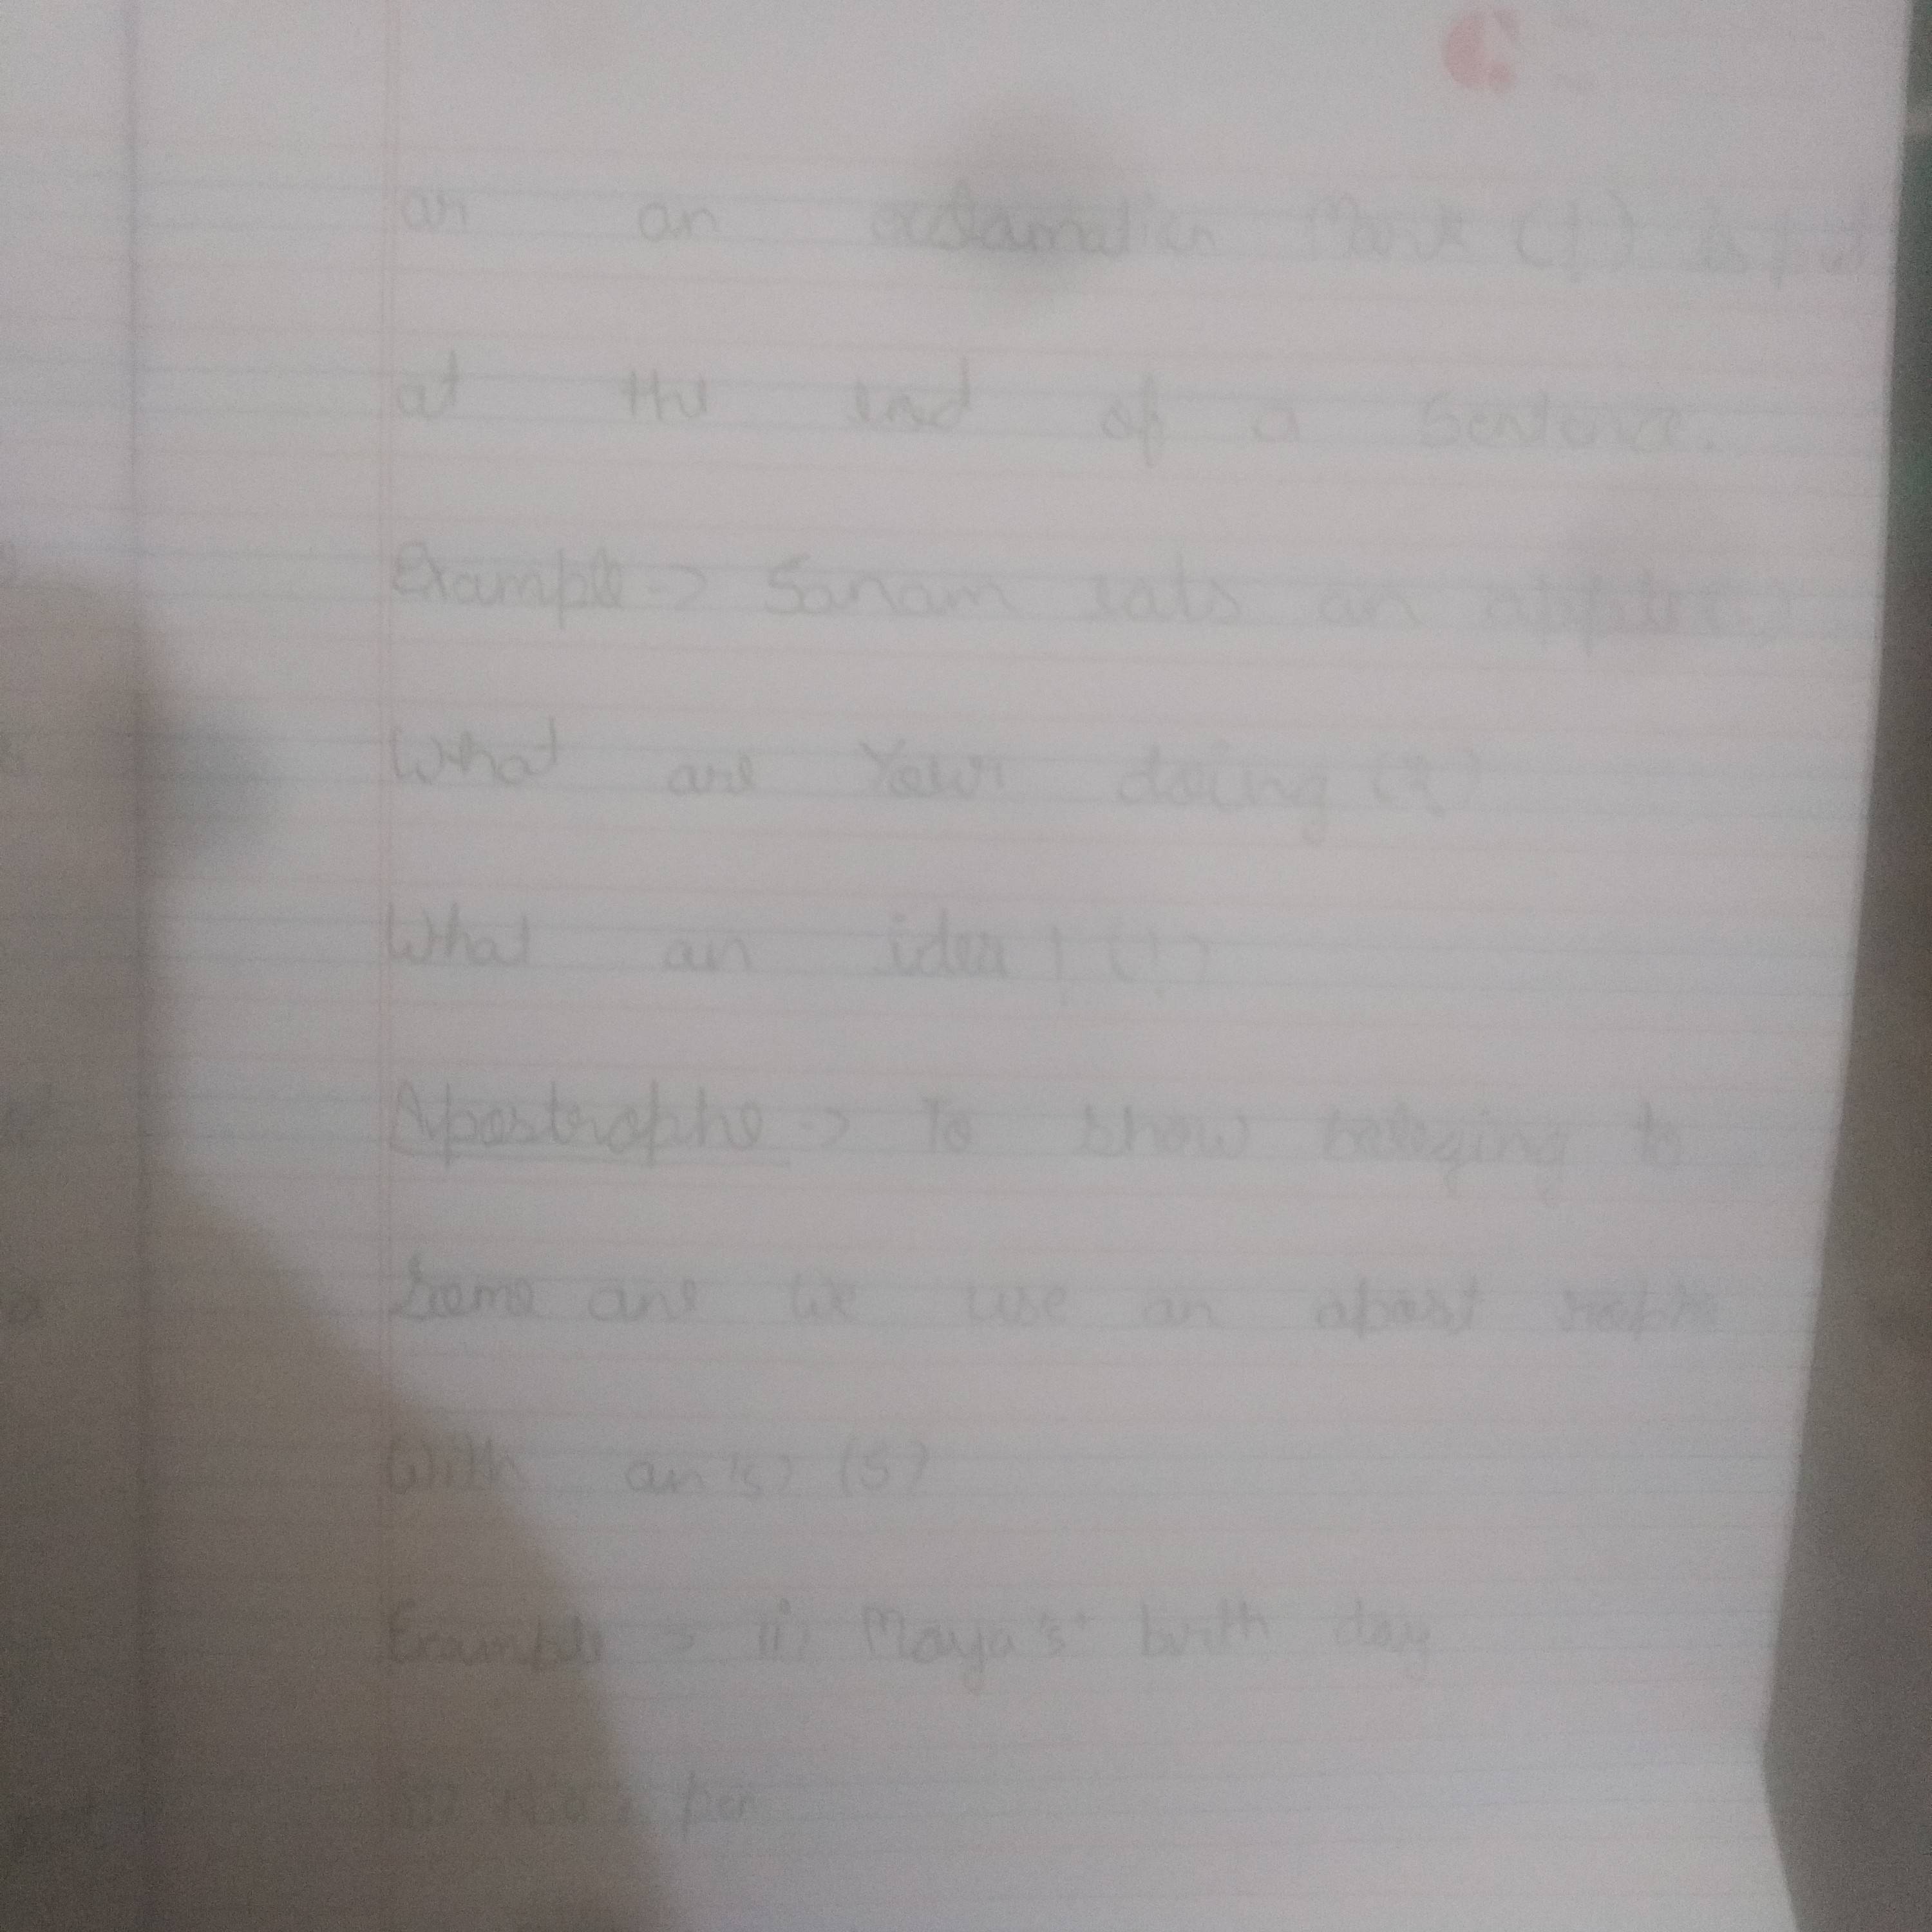 or an exclamation Mark (!) is put
at the end of a Sentence.
Example -> Sanam eats an
What are Your doing (?)
What an idea ! (!)
Apostrophe -> To show to
Some one We use an apost rophe
With an 's' (s)
Example > i) Maya's birth day
pen